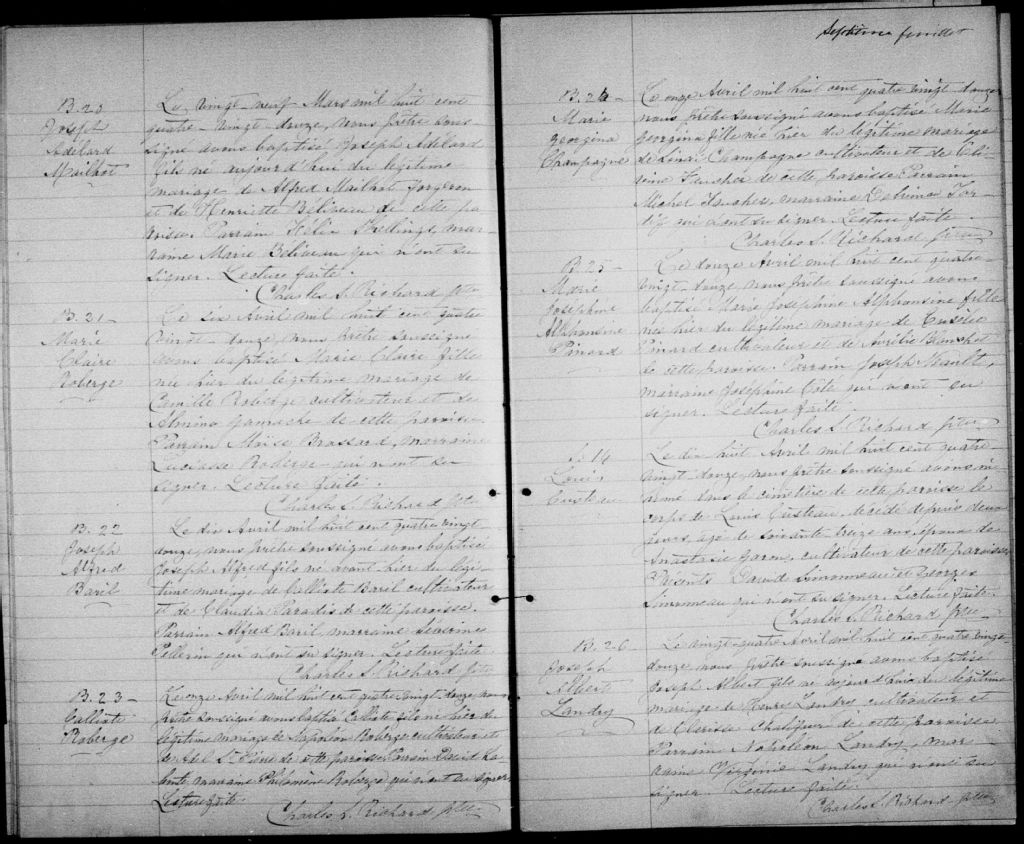 B. 20
Joseph
Adélard
Mailhot
Le vingt-neuf Mars mil huit cent
quatre-vingt-douze, nous prêtre sous
signé avons baptisé Joseph Adélard
fils né aujourd'hui du légitime
mariage de Alfred Mailhot forgeron
et de Henriette Béliveau de cette pa
roisse. Parrain Félix Skillings, mar-
raine Marie Béliveau qui n'ont su
signer. Lecture faite.
Charles S. Richard ptre
B. 21
Marie
Claire
Roberge
Le six Avril mil huit cent quatre
vingt-douze, nous prêtre soussigné
avons baptisé Marie Claire fille
née hier du légitime mariage de
Camille Roberge cultivateur et de
Gamache de cette paroisse.
Parrain Moïse Brassard, marraine
Roberge qui n'ont su
signer. Lecture faite.
Charles S. Richard ptre
B. 22
Joseph
Alfred
Baril
Le dix Avril mil huit cent quatre vingt
douze, nous prêtre soussigné avons baptisé
Joseph Alfred fils né avant-hier du légi
time mariage de Calliste Baril cultivateur
et de Claudia Paradis de cette paroisse.
Parrain Alfred Baril marraine
Pellerin qui n'ont su signer. Lecture faite.
Charles S. Richard ptre
B. 23
Calliste
Roberge
Le onze Avril mil huit cent quatre vingt-douze nous
prêtre soussigné avons baptisé Calliste fils né hier du
légitime mariage de Napoléon Roberge cultivateur et
de cette paroisse. Parrain
marraine Philomène Roberge qui n'ont su signer
Lecture faite
Charles S. Richard ptre
Septième feuillet
B. 24
Marie
Georgina
Champagne
Le onze Avril mil huit cent quatre vingt douze
nous prêtre soussigné avons baptisé Marie
Georgina fille née hier du légitime mariage
de Champagne cultivateur et de
de cette paroisse Parrain
Michel marraine
qui n'ont su signer. Lecture faite.
Charles S. Richard ptre
B. 25
Marie
Josephine
Alphonsine
Pinard
Le douze Avril mil huit cent quatre
vingt-douze, nous prêtre soussigné avons
baptisé Marie Josephine Alphonsine fille
née hier du légitime mariage de
Pinard cultivateur et de Aurélie
de cette paroisse. Parrain Joseph
marraine Joséphine Côté qui n'ont su
signer. Lecture faite.
Charles S. Richard ptre
S. 14
Louis
Custeau
Le dix huit Avril mil huit cent quatre-
vingt douze, nous prêtre soussigné avons in
humé dans le cimetière de cette paroisse le
corps de Louis Custeau, décédé depuis deux
jours, agé de soixante treize ans, époux de
Anastasie Garon, cultivateur de cette paroisse
Présents David Simonneau et Georges
Simonneau qui n'ont su signer. Lecture faite.
Charles S. Richard ptre
B. 26
Joseph
Albert
Landry
Le vingt-quatre Avril mil huit cent quatre vingt
douze, nous prêtre soussigné avons baptisé
Joseph Albert fils né aujourd'hui du légitime
mariage de Henri Landry cultivateur et
de Clarisse de cette paroisse
Parrain Napoléon Landry, mar
raine Virginie Landry qui n'ont su
signer. Lecture faite.
Charles S. Richard ptre